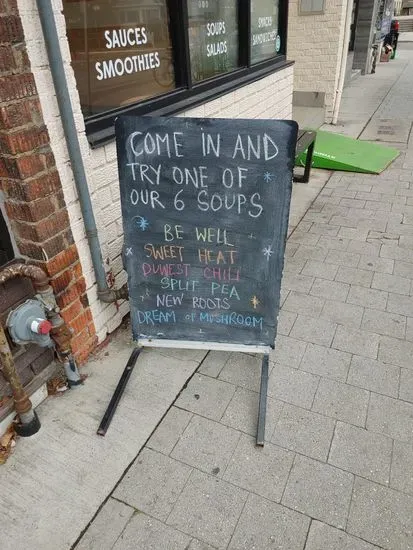 SAUCES
SMOOTHIES
SOUPS
SALADS
SNACKS
SANDWICHES
COME IN AND
TRY ONE OF
OUR 6 SOUPS
BE WELL
SWEET HEAT
DUWEST CHILI
SPLIT PEA
NEW ROOTS
DREAM OF MUSHROOM